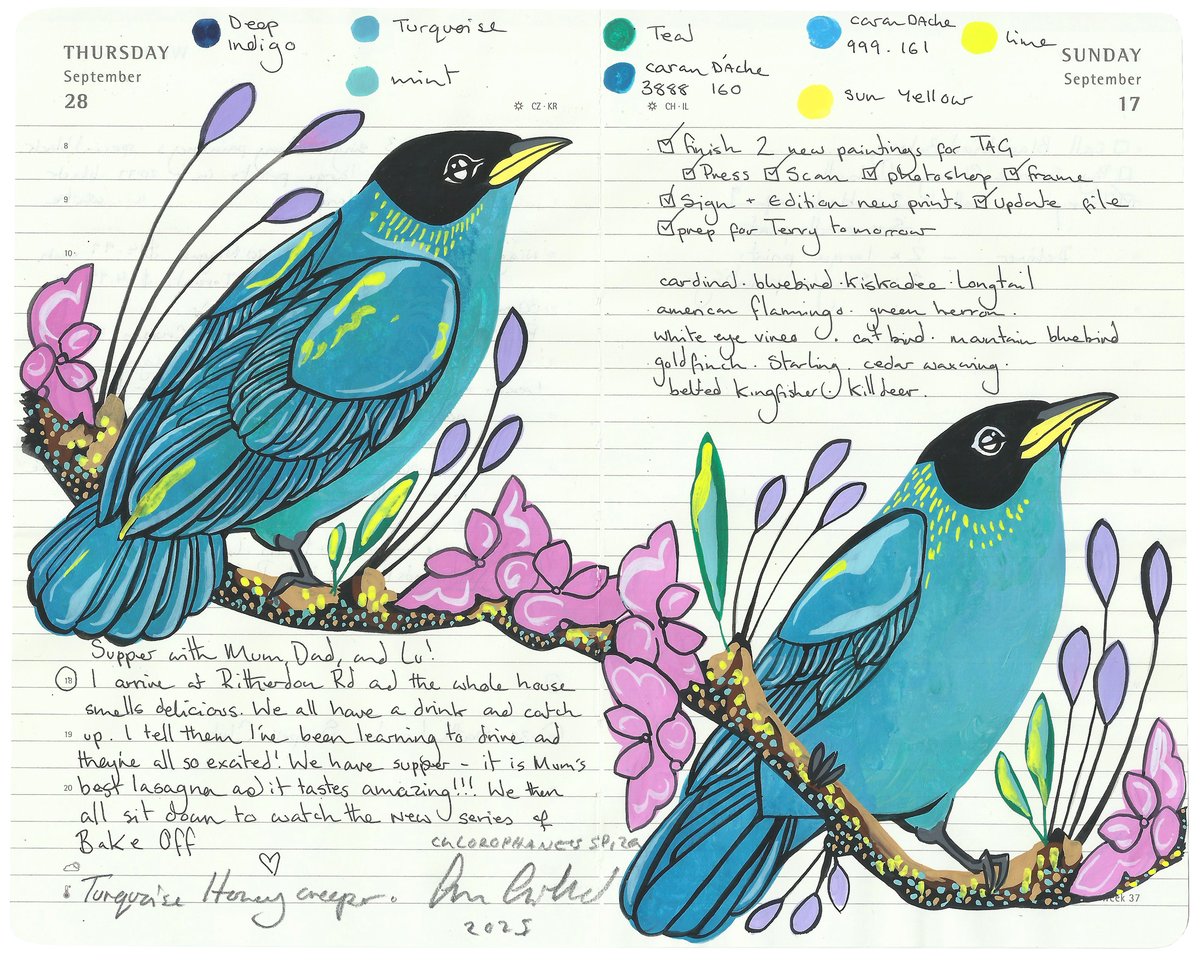 Deep
indigo
Turquoise
mint
THURSDAY
September
28
CZ · KR
8
9
10
Supper with Mum, Dad, and Lu!
18 I arrive at Ritherdon Rd and the whole house
smells delicious. We all have a drink and catch
19 up. I tell them I've been learning to drive and
they're all so excited! We have supper - it is Mum's
20 best lasagna and it tastes amazing!!! We then
all sit down to watch the new series of
Bake Off
CHLOROPHANES SPIZA
Turquoise Honey creeper.
2025
Teal
caran DAche
999.161
lime
caran D'Ache
3888 160
sun Yellow
SUNDAY
September
17
CH · IL
☑ finish 2 new paintings for TAG
☑ Press ☑ Scan ☑ photoshop ☑ frame
☑ Sign + Edition new prints ☑ update file
☑ prep for Terry tomorrow
cardinal · bluebird · Kiskadee · Longtail
american flamingo · green herron ·
white eye vireo · catbird · mountain bluebird
goldfinch · Starling · cedar waxwing ·
belted Kingfisher Killdeer ·
Week 37